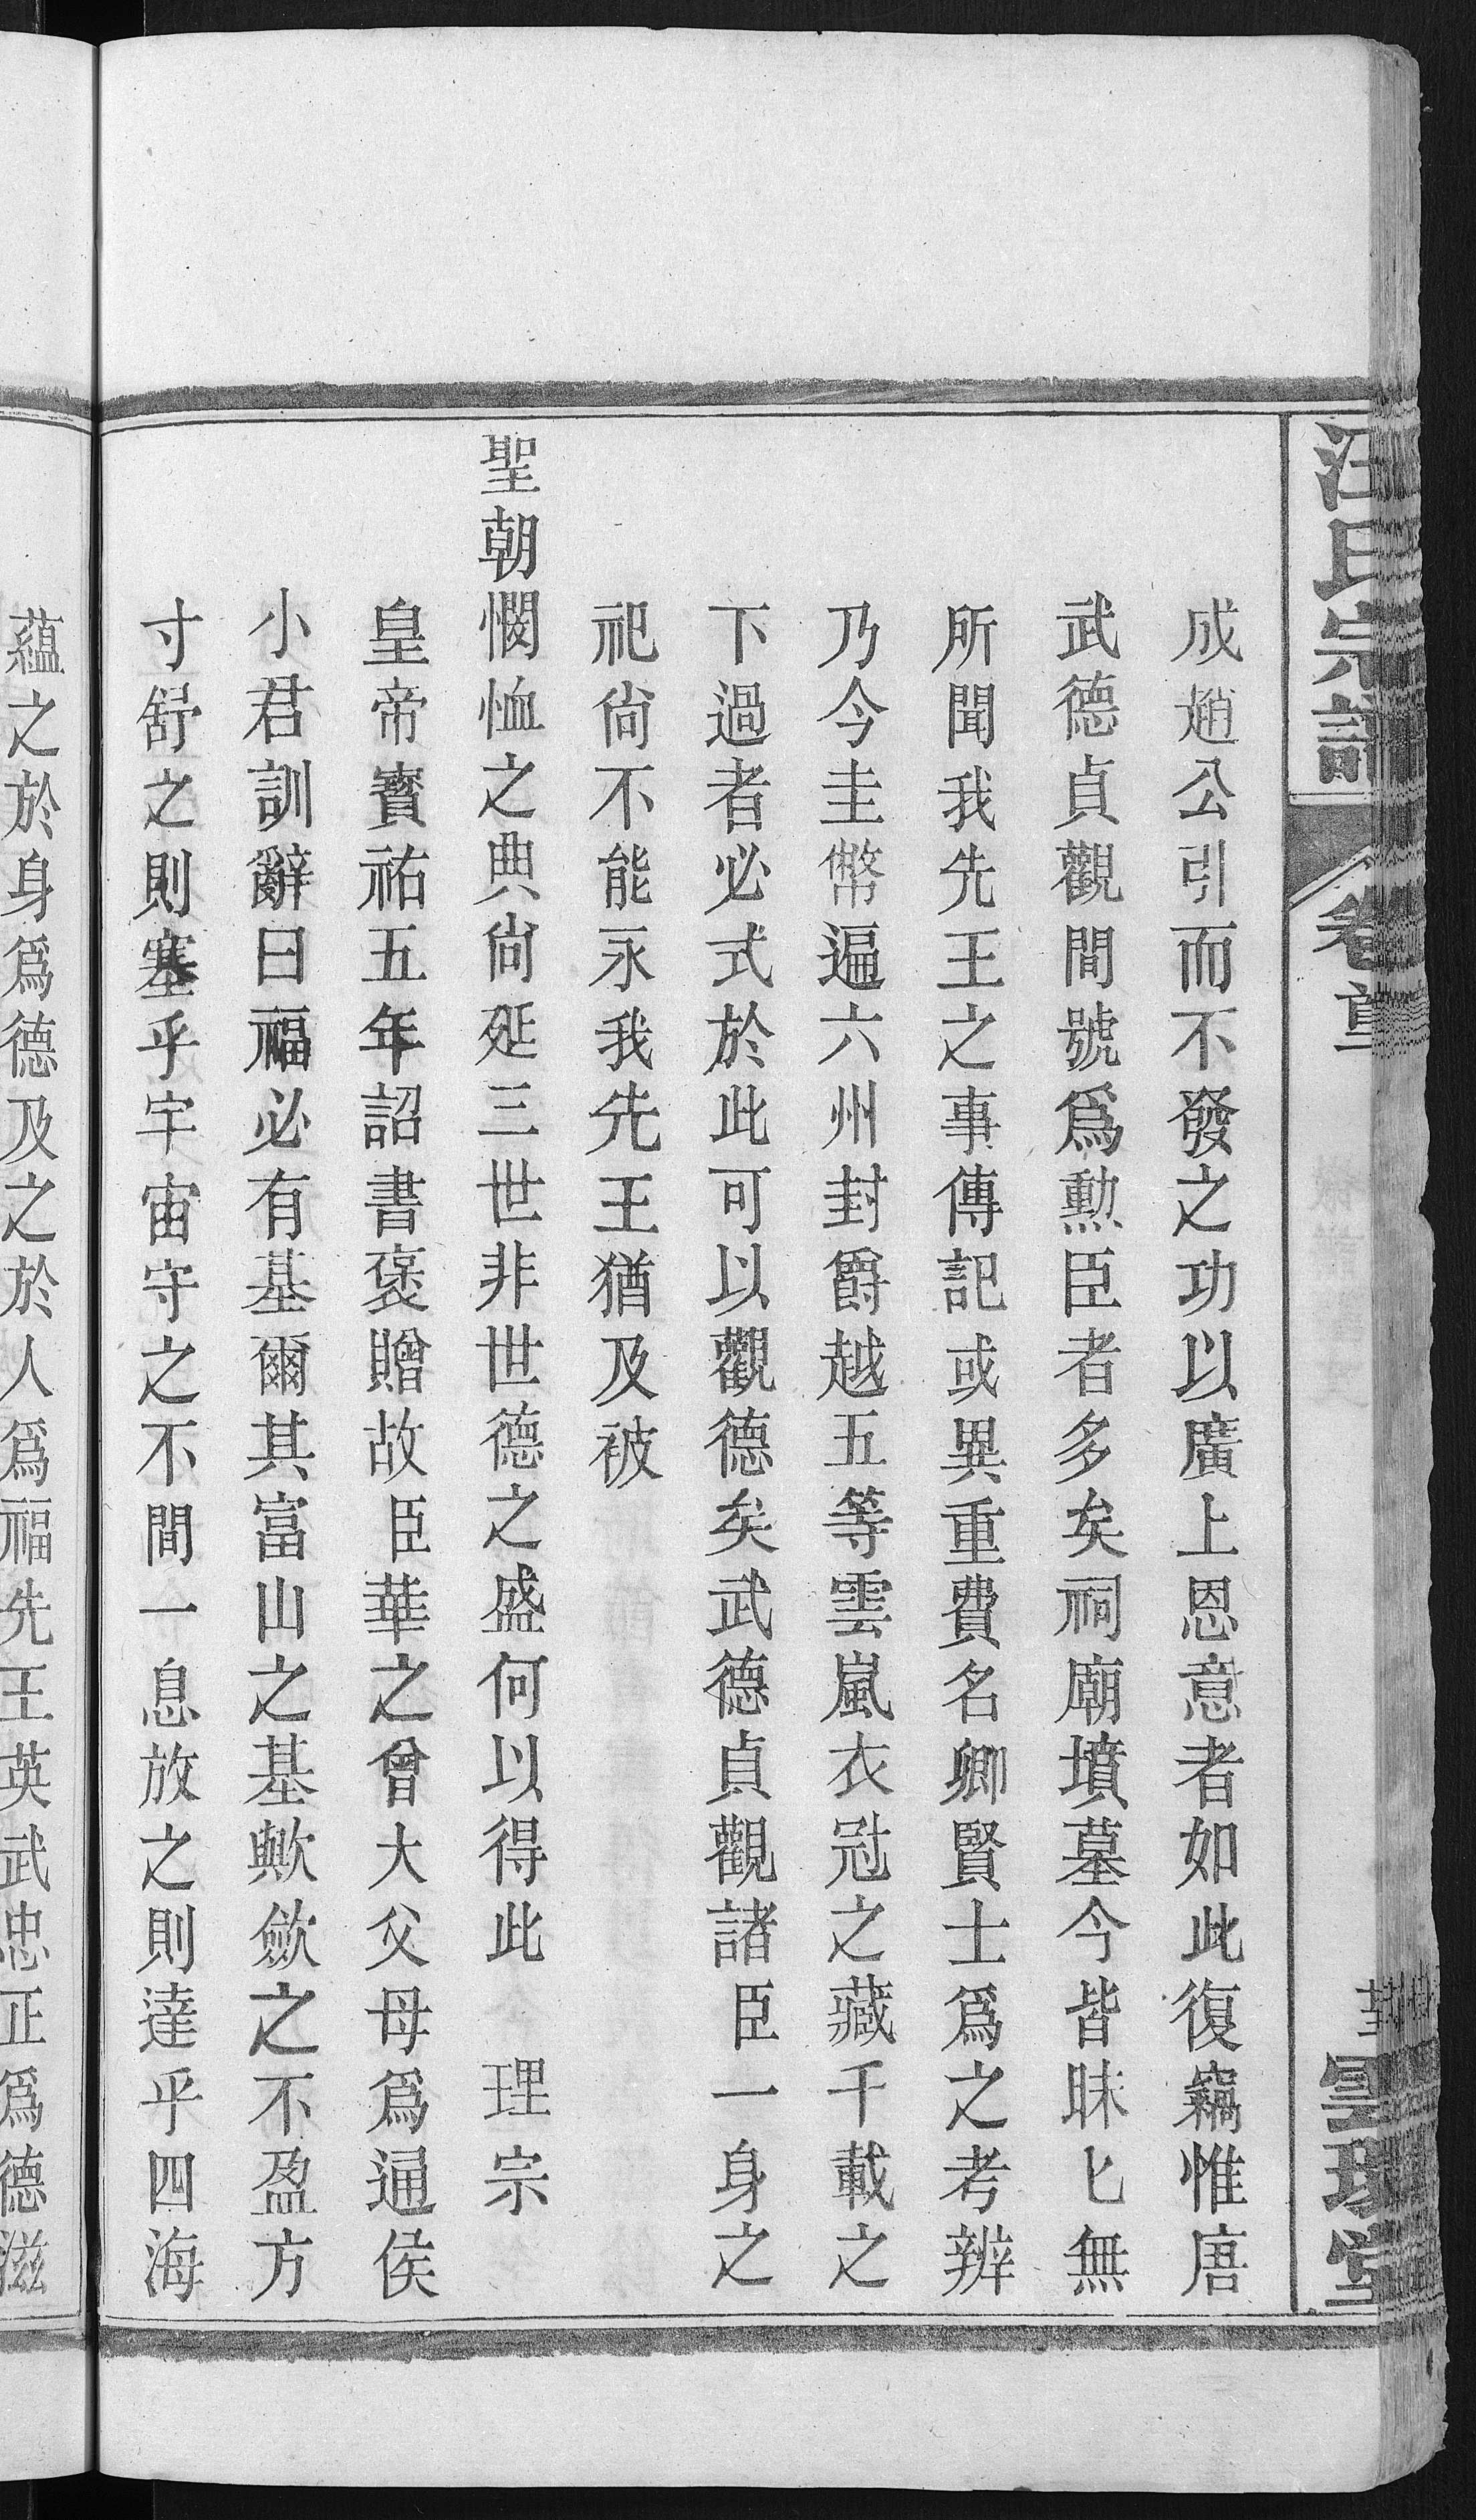 汪氏宗譜
卷首
雲環堂
成趙公引而不發之功以廣上恩意者如此復竊惟唐
武德貞觀間號爲勲臣者多矣祠廟墳墓今皆昧匕無
所聞我先王之事傳記或異重費名卿賢士爲之考辨
乃今圭幣遍六州封爵越五等雲嵐衣冠之藏千載之
下過者必式於此可以觀德矣武德貞觀諸臣一身之
祀尙不能永我先王猶及被
聖朝憫恤之典尙延三世非世德之盛何以得此 理宗
皇帝寳祐五年詔書褒贈故臣華之曾大父母爲通侯
小君訓辭曰福必有基爾其富山之基歟斂之不盈方
寸舒之則塞乎宇宙守之不間一息放之則達乎四海
蘊之於身爲德及之於人爲福先王英武忠正爲德滋